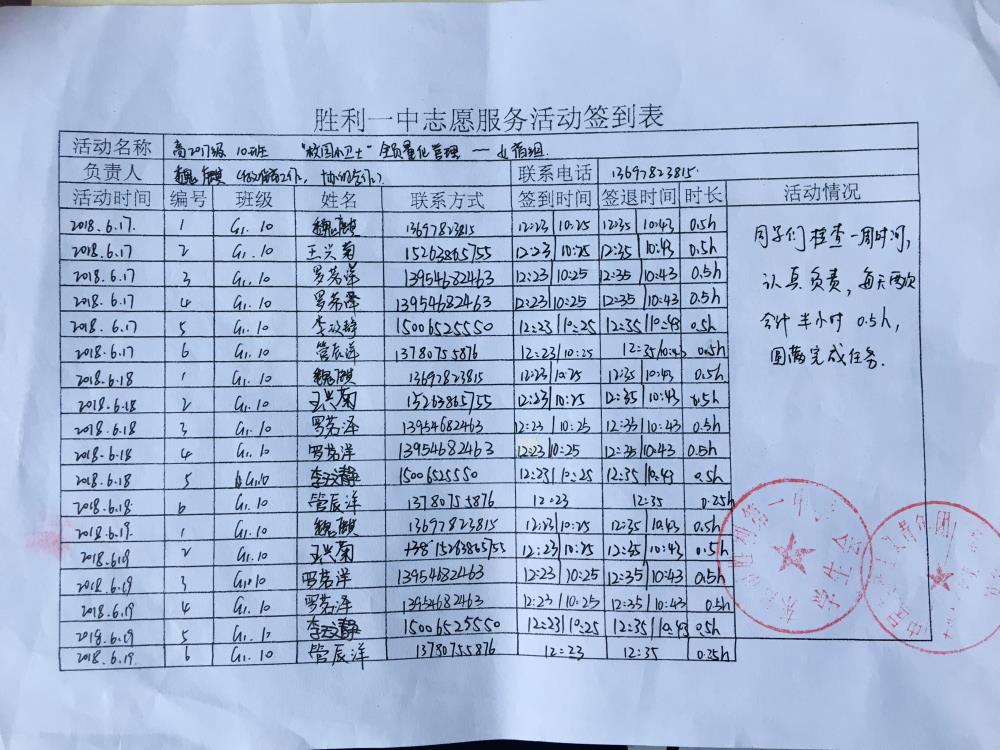 胜利一中志愿服务活动签到表
活动名称 高2017级 10班 "校园小卫士"全员量化管理 — 女宿组
负责人 魏麒 联系电话 13697823815
活动时间 编号 班级 姓名 联系方式 签到时间 签退时间 时长 活动情况
2018.6.17. 1 G1.10 魏麒 13697823815 12:23 10:25 12:35 10:43 0.5h
2018.6.17 2 G1.10 王兴菊 15263865755 12:23 10:25 12:35 10:43 0.5h
2018.6.17 3 G1.10 罗茗洋 13954682463 12:23 10:25 12:35 10:43 0.5h
2018.6.17 4 G1.10 罗茗泽 13954682463 12:23 10:25 12:35 10:43 0.5h
2018.6.17 5 G1.10 15006525550 12:23 10:25 12:35 10:43 0.5h
2018.6.17 6 G1.10 管辰洋 13780755876 12:23 10:25 12:35 10:43 0.5h
2018.6.18 1 G1.10 魏麒 13697823815 12:23 10:25 12:35 10:43 0.5h
2018.6.18 2 G1.10 王兴菊 15263865755 12:23 10:25 12:35 10:43 0.5h
2018.6.18 3 G1.10 罗茗泽 13954682463 12:23 10:25 12:35 10:43 0.5h
2018.6.18 4 G1.10 罗茗洋 13954682463 12:23 10:25 12:35 10:43 0.5h
2018.6.18 5 G1.10 15006525550 12:23 10:25 12:35 10:43 0.5h
2018.6.18. 6 G1.10 管辰洋 13780755876 12:23 12:35 0.25h
2018.6.19. 1 G1.10 魏麒 13697823815 12:23 10:25 12:35 10:43 0.5h
2018.6.19 2 G1.10 王兴菊 15263865755 12:23 10:25 12:35 10:43 0.5h
2018.6.19 3 G1.10 罗茗洋 13954682463 12:23 10:25 12:35 10:43 0.5h
2018.6.19 4 G1.10 罗茗泽 13954682463 12:23 10:25 12:35 10:43 0.5h
2018.6.19 5 G1.10 15006525550 12:23 10:25 12:35 10:43 0.5h
2018.6.19. 6 G1.10 管辰洋 13780755876 12:23 12:35 0.25h
同学们检查一周时间,
认真负责,每天两次
合计半小时 0.5h,
圆满完成任务.